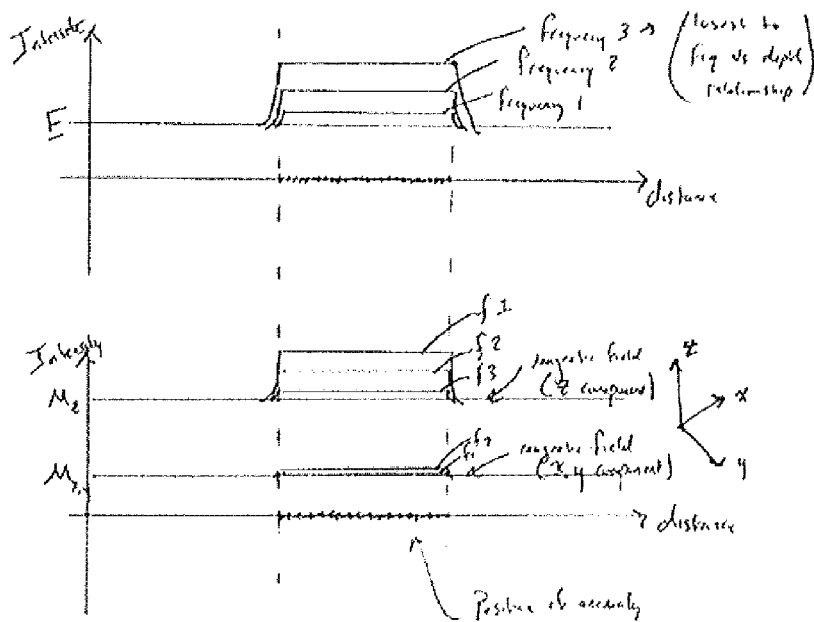 Intensity
frequency 3 → (closest to
freq vs depth
relationship)
frequency 2
frequency 1
E
distance
Intensity
f 1
f 2
f 3
M z
magnetic field
(z component)
z
x
y
f1
magnetic field
(x, y component)
M x,y
distance
Position of anomaly